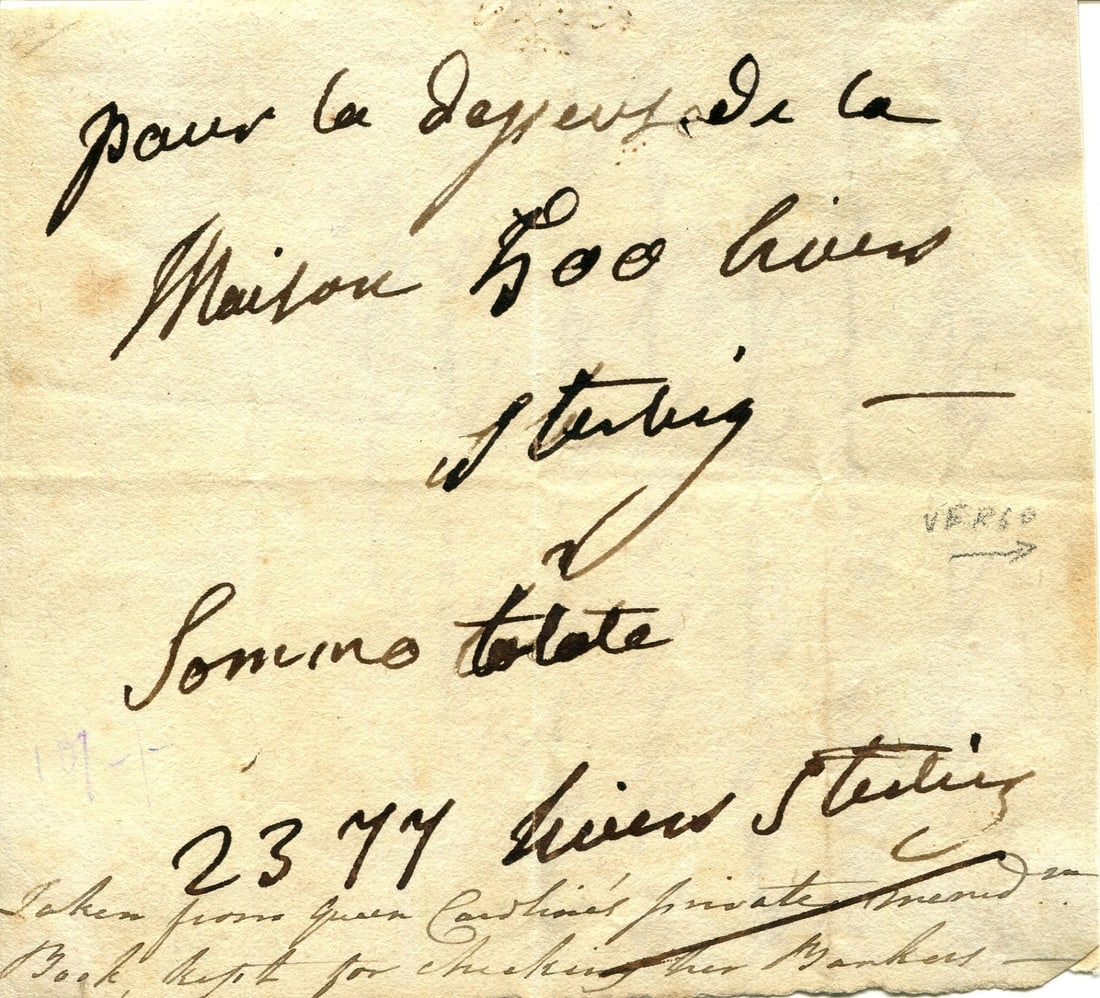 pour la depens de la
Maison 500 Livers
Sterling —
Somme totate
2377 Livers Sterling
VERSO
Taken from Queen Caroline's private memdm
Book, kept for checking her Bankers —